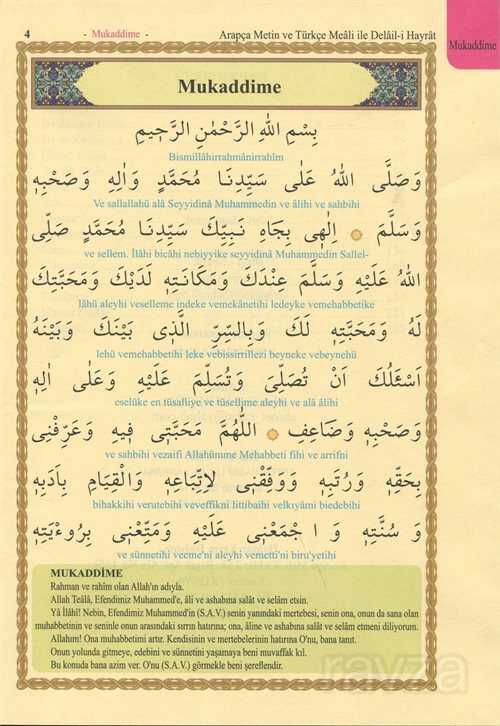 4
- Mukaddime -
Arapça Metin ve Türkçe Meâli ile Delâil-i Hayrât
Mukaddime
Mukaddime
بِسْمِ اللهِ الرَّحْمٰنِ الرَّحٖيمِ
Bismillâhirrahmânirrahîm
وَصَلَّى اللهُ عَلٰى سَيِّدِنَا مُحَمَّدٍ وَاٰلِهٖ وَصَحْبِهٖ
Ve sallallahü alâ Seyyidinâ Muhammedin ve âlihi ve sahbihi
وَسَلَّمَ اِلٰهٖى بِجَاهِ نَبِيِّكَ سَيِّدِنَا مُحَمَّدٍ صَلَّى
ve sellem. İlâhi bicâhi nebiyyike seyyidinâ Muhammedin Sallel-
اللهُ عَلَيْهِ وَسَلَّمَ عِنْدَكَ وَمَكَانَتِهٖ لَدَيْكَ وَمَحَبَّتِكَ
lâhü aleyhi veselleme indeke vemekânetihi ledeyke vemehabbetike
لَهُ وَمَحَبَّتِهٖ لَكَ وَبِالسِّرِّ الَّذٖى بَيْنَكَ وَبَيْنَهُ
lehû vemehabbetihi leke vebissirrillezi beyneke vebeynehü
اَسْئَلُكَ اَنْ تُصَلِّىَ وَتُسَلِّمَ عَلَيْهِ وَعَلٰى اٰلِهٖ
eselüke en tüsalliye ve tüsellime aleyhi ve alâ âlihi
وَصَحْبِهٖ وَضَاعِفِ اَللّٰهُمَّ مَحَبَّتٖى فٖيهِ وَعَرِّفْنٖى
ve sahbihi vezaifi Allahümme Mehabbeti fihi ve arrifni
بِحَقِّهٖ وَرُتَبِهٖ وَوَفِّقْنٖى لِاتِّبَاعِهٖ وَالْقِيَامِ بِاَدَبِهٖ
bihakkihi verutebihi veveffikni littibaihi velkıyâmi biedebihi
وَ سُنَّتِهٖ وَ اجْمَعْنٖى عَلَيْهِ وَمَتِّعْنٖى بِرُوءْيَتِهٖ
ve sünnetihi vecme'ni aleyhi vemetti'ni biru'yetihi
MUKADDİME
Rahman ve rahîm olan Allah'ın adıyla.
Allah Teâlâ, Efendimiz Muhammed'e, âli ve ashabına salât ve selâm etsin.
Yâ İlâhî! Nebin, Efendimiz Muhammed'in (S.A.V.) senin yanındaki mertebesi, senin ona, onun da sana olan
muhabbetinin ve seninle onun arasındaki sırrın hatırına; ona, âline ve ashabına salât ve selâm etmeni diliyorum.
Allahım! Ona muhabbetimi artır. Kendisinin ve mertebelerinin hatırına O'nu, bana tanıt.
Onun yolunda gitmeye, edebini ve sünnetini yaşamaya beni muvaffak kıl.
Bu konuda bana azim ver. O'nu (S.A.V.) görmekle beni şereflendir.
ravza